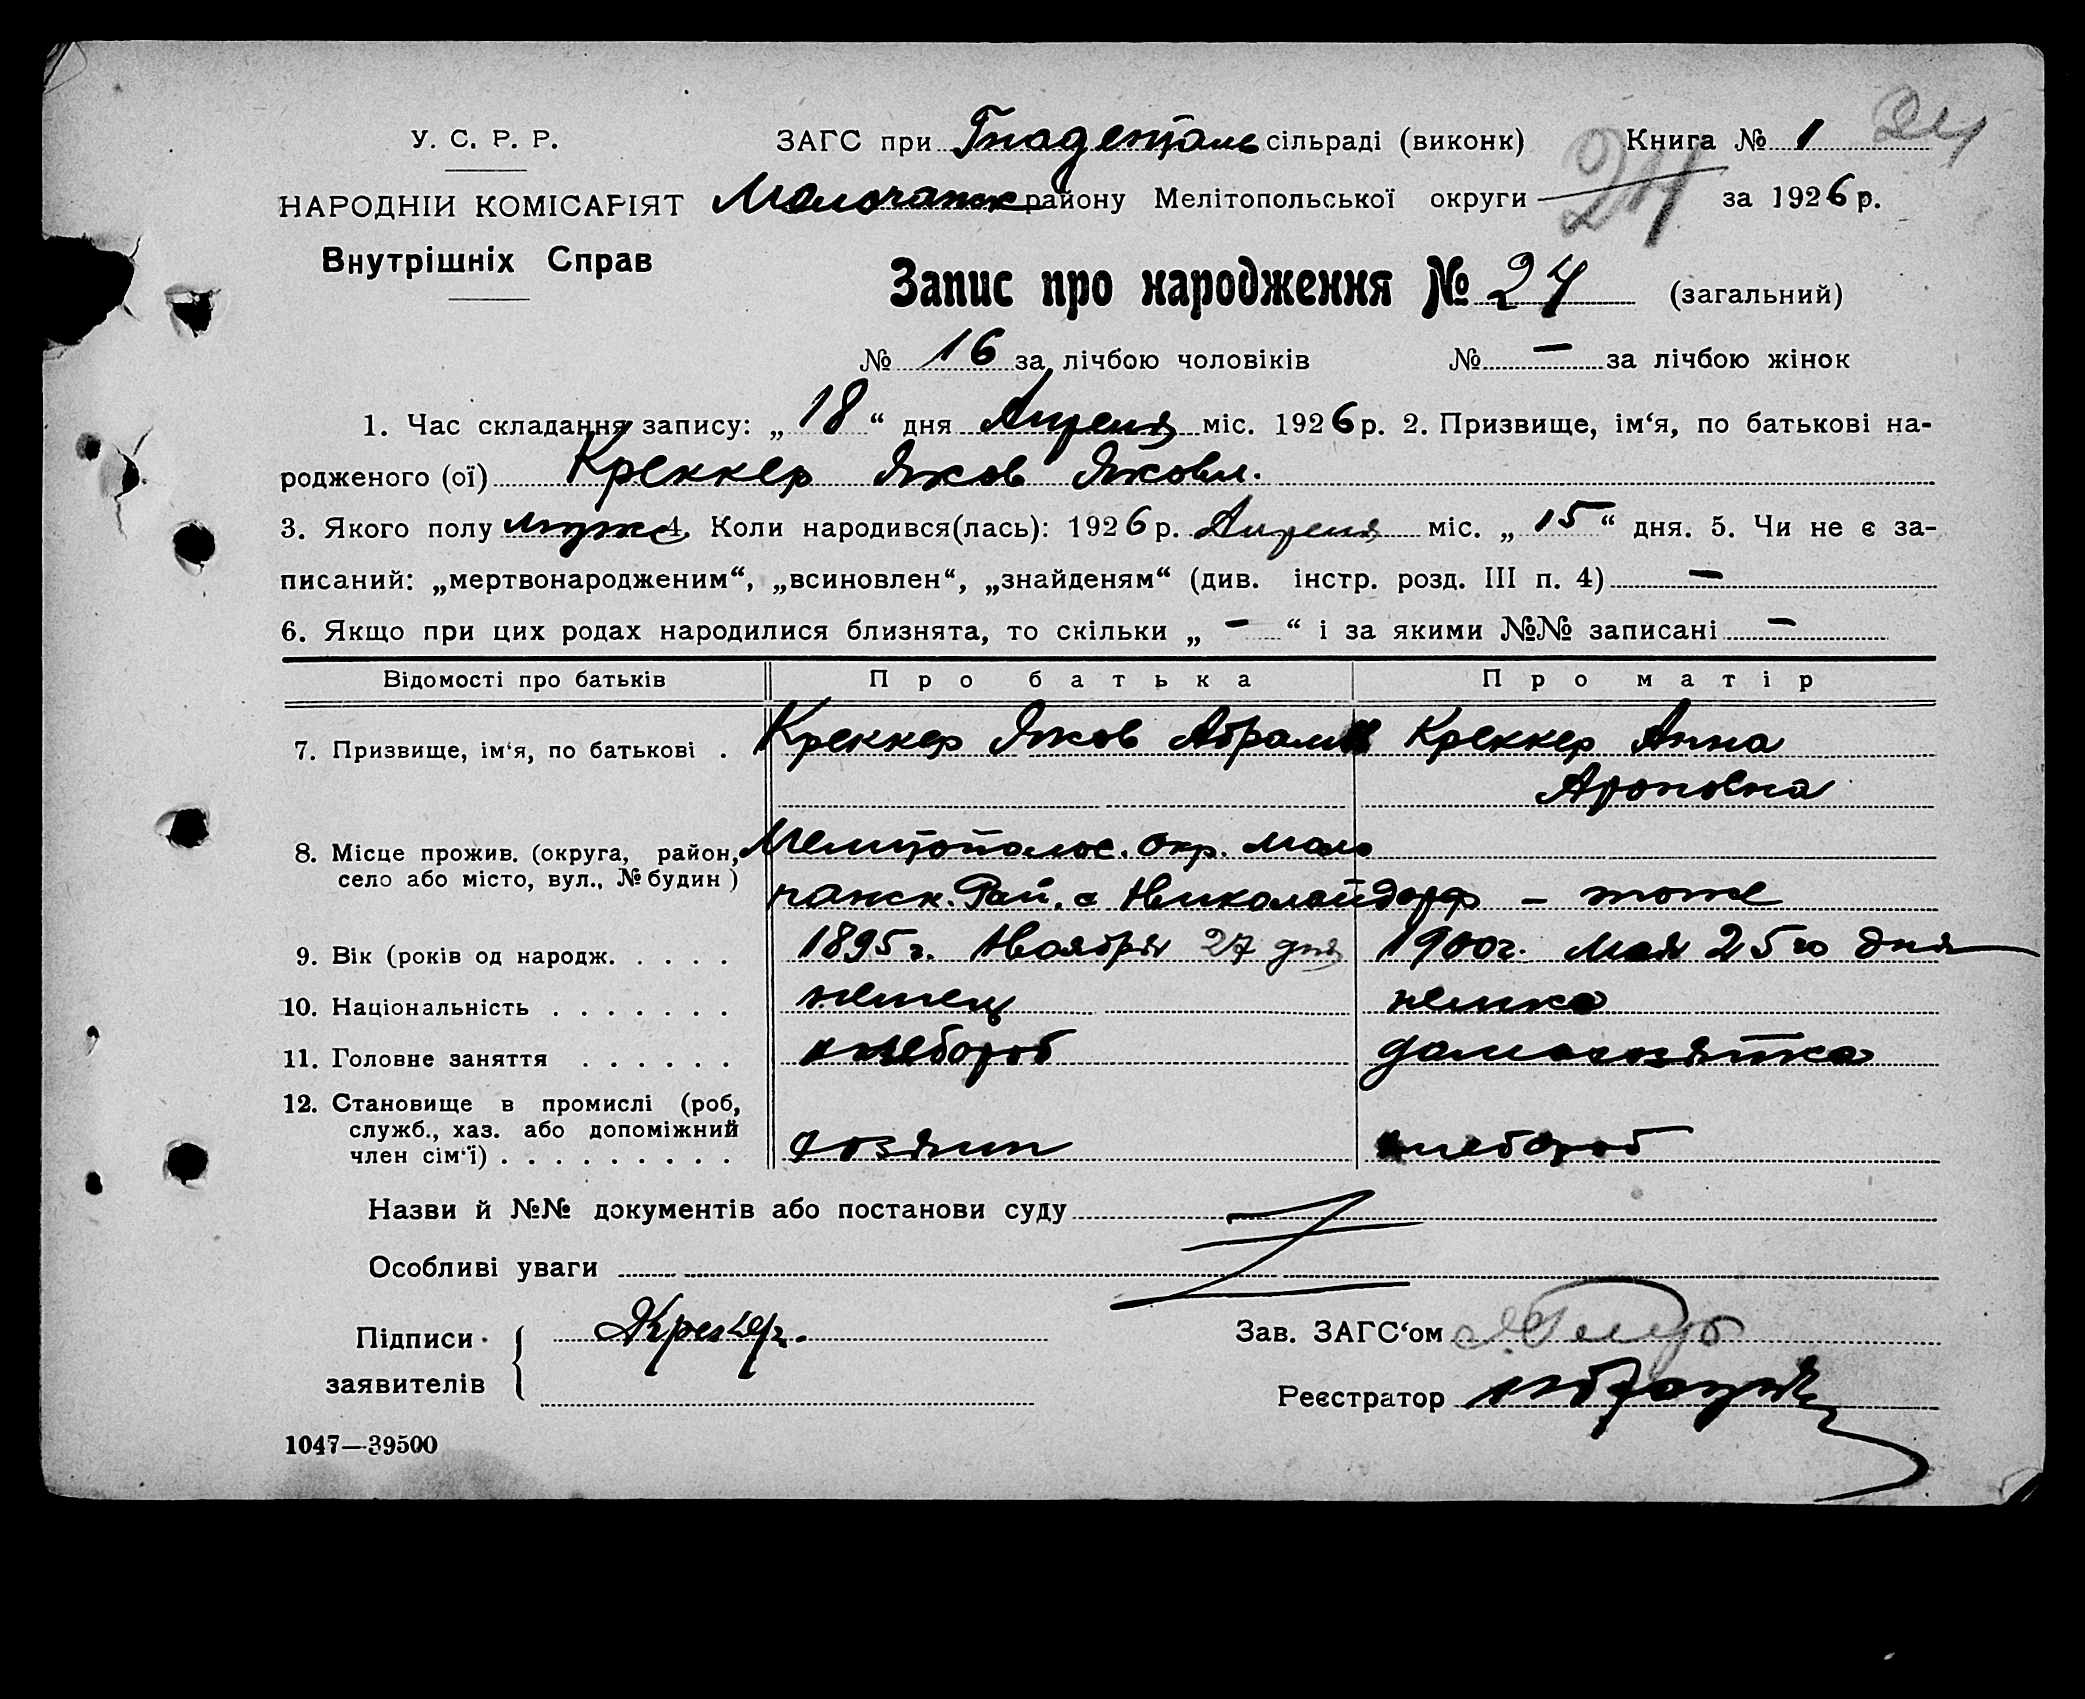 24
У. С. Р. Р. ЗАГС при Гнаденталь сільраді (виконк) Книга № 1
24
НАРОДНІЙ КОМІСАРІЯТ Молочанск району Мелітопольської округи за 1926 р.
Внутрішніх Справ
Запис про народження № 24 (загальний)
№ 16 за лічбою чоловіків № — за лічбою жінок
1. Час складання запису: „ 18 “ дня Апреля міс. 1926 р. 2. Призвище, ім‘я, по батькові на-
родженого (ої) Креккер Яков Яковл.
3. Якого полу мужс 4. Коли народився(лась): 1926 р. Апреля міс. „ 15 “ дня. 5. Чи не є за-
писаний: „мертвонародженим“, „всиновлен“, „знайденям“ (див. інстр. розд. III п. 4) —
6. Якщо при цих родах народилися близнята, то скільки „ - “ і за якими №№ записані —
Відомості про батьків Про батька Про матір
7. Призвище, ім‘я, по батькові . Креккер Яков Абрам Креккер Анна
Ароновна
8. Місце прожив. (округа, район, Мелитополос. окр. Моло
село або місто, вул., № будин ) чанск. Рай. с Николайдорф — тоже
9. Вік (років од народж. . . . . 1895 г. Ноября 27 дня 1900 г. Мая 25 го дня
10. Національність . . . . . . . немец немка
11. Головне заняття . . . . . . хлебороб домохозяйка
12. Становище в промислі (роб,
служб., хаз. або допоміжний
член сім‘ї) . . . . . . . . . хозяин хлебороб
Назви й №№ документів або постанови суду
Особливі уваги
Підписи Зав. ЗАГС‘ом
заявителів Реєстратор
1047—39500